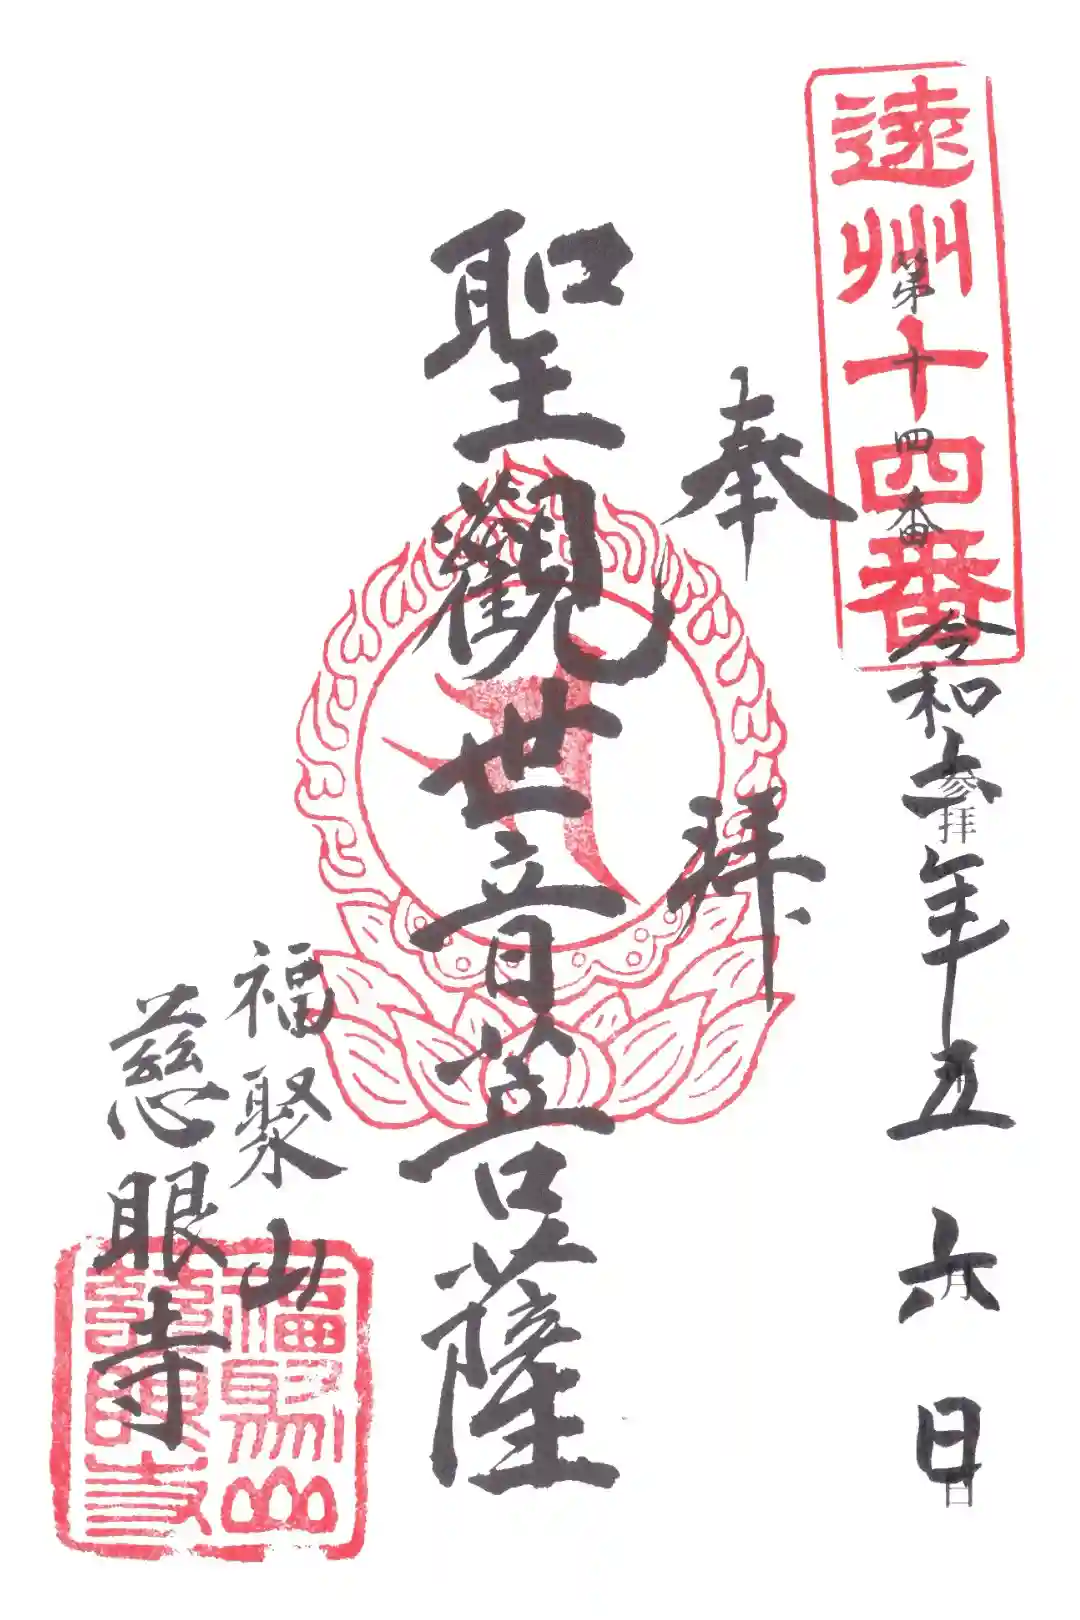 遠州十四番
第十四番
令和年五六日
参拝
月
日
奉拝
聖觀世音菩薩
福聚山
慈眼寺
福聚山
慈眼寺